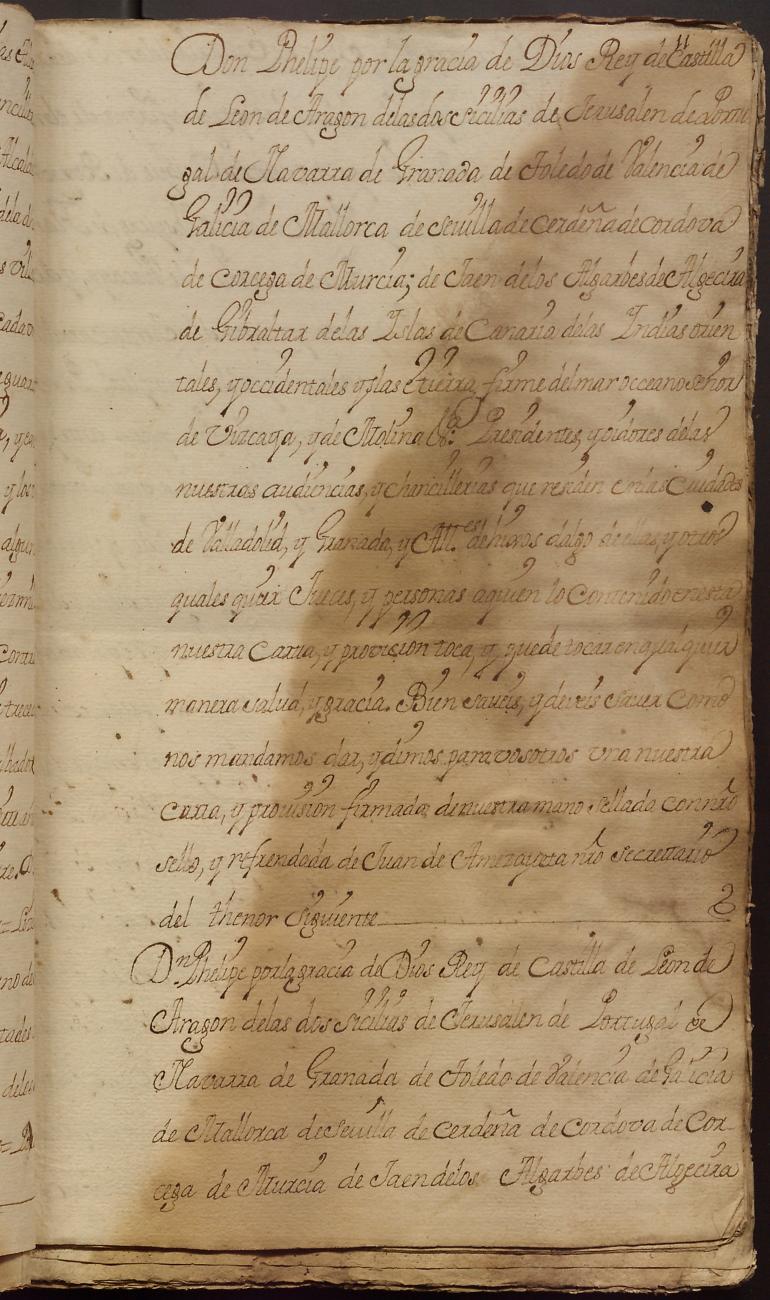 Don Phelipe por la gracia de Dios Rey de Castilla
de Leon de Aragon delas dos sicilias de Jerusalen de Portu
gal de Navarra de Granada de Toledo de Valencia de
Galicia de Mallorca de sevilla de cerdeña de cordova
de corcega de Murcia; de Jaen delos Algarbes de Algecira
de Gibraltar delas Islas de Canaria delas Indias orien
tales, y occidentales yslas e tierra firme del mar occeano señor
de Vizcaya, y de Molina &ª. Presidentes, y oidores delas
nuestras audiencias, y chancillerias que residen en las Ciudades
de Valladolid, y Granada, y All.es de hijos dalgo de ellas, y otros
quales quier Jueces, y personas a quien lo contenido en esta
nuestra Carta, y provision toca, y puede tocar en qualquier
manera salud, y gracia. Bien saveis, y deveis saver como
nos mandamos dar, y dimos para vosotros una nuestra
carta, y provision firmada de nuestra mano sellada con nrō
sello, y refrendada de Juan de Amezayeta nrō secrettario
del thenor siguiente
Dn Phelipe por la gracia de Dios Rey de Castilla de Leon de
Aragon delas dos sicilias de Jerusalen de Portugal de
Navarra de Granada de Toledo de Valencia de Galicia
de Mallorca de sevilla de cerdeña de cordova de Cor-
cega de Murcia de Jaen delos Algarbes de Algecira